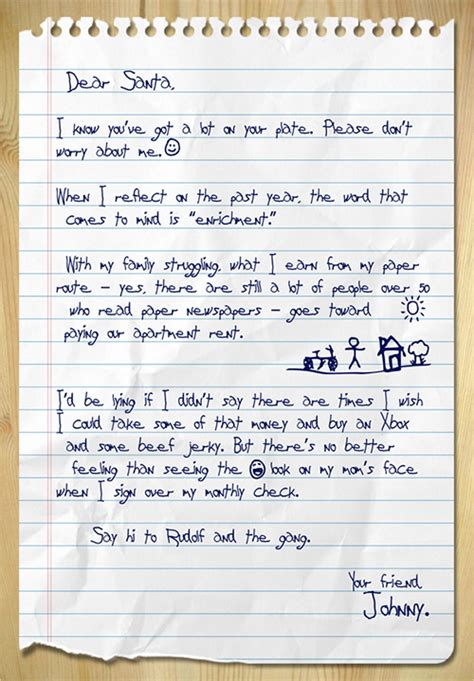 Dear Santa,
I know you've got a lot on your plate. Please don't
worry about me.
When I reflect on the past year, the word that
comes to mind is "enrichment."
With my family struggling, what I earn from my paper
route – yes, there are still a lot of people over 50
who read paper newspapers – goes toward
paying our apartment rent.
I'd be lying if I didn't say there are times I wish
I could take some of that money and buy an Xbox
and some beef jerky. But there's no better
feeling than seeing the look on my mom's face
when I sign over my monthly check.
Say hi to Rudolf and the gang.
Your friend
Johnny.